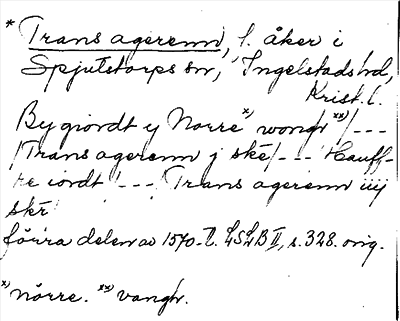 * Trans agerenn, f. åker i
Spjutstorps sn, Ingelstads hd,
Krist. l.
By giordt y Norre *) wongh **) /---
/Trans agerenn j ske/--- Hauff-
re iordt /--- /Trans agerenn iiij
ske
förra delen av 1570-t. LSLB II, s. 328. orig.
*) nörre. **) vangh.